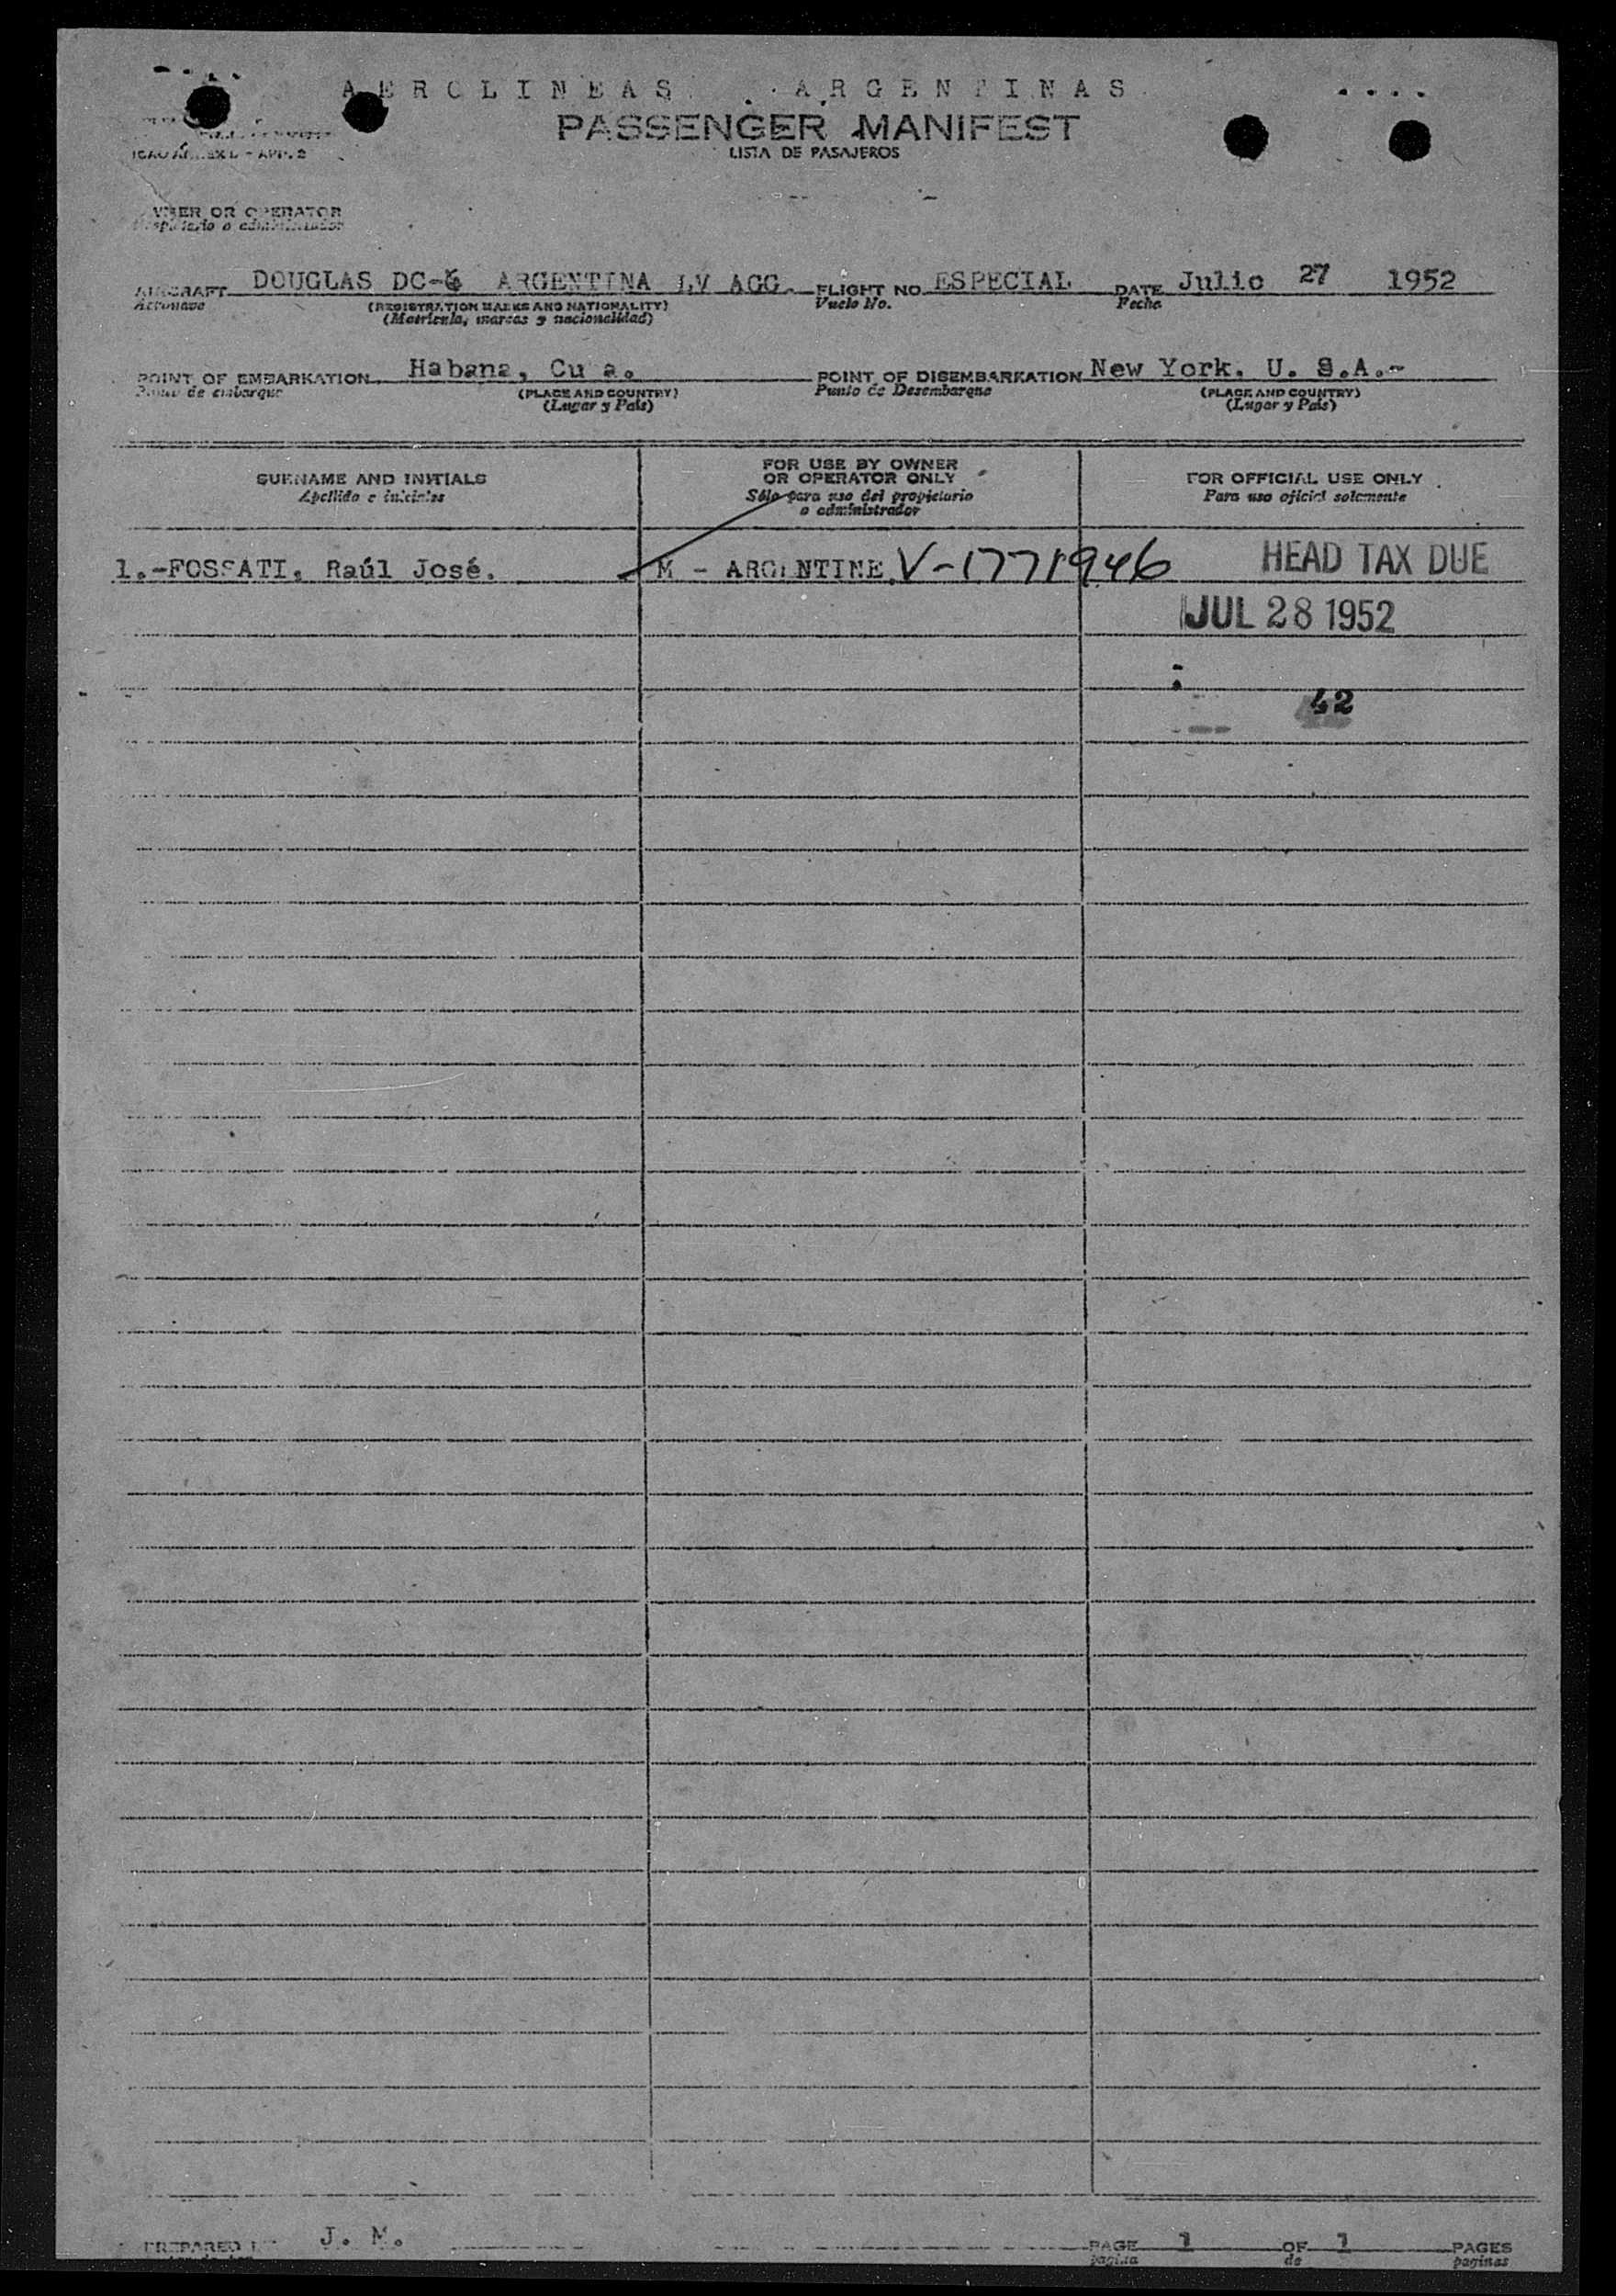 AEROLINEAS ARGENTINAS
PASSENGER MANIFEST
LISTA DE PASAJEROS
OR OPERATOR
AIRCRAFT DOUGLAS DC-6 ARGENTINA LV FLIGHT NO ESPECIAL DATE Julio 27 1952
Aeronave (REGISTRATION MARKS AND NATIONALITY) Vuelo No. Fecha
(Matrícula, marcas y nacionalidad)
POINT OF EMBARKATION Habana, Cu a. POINT OF DISEMBARKATION New York. U. S.A.-
Punto de embarque (PLACE AND COUNTRY) Punto de Desembarque (PLACE AND COUNTRY)
(Lugar y País) (Lugar y País)
SURNAME AND INITIALS
Apellido e iniciales
FOR USE BY OWNER
OR OPERATOR ONLY
Sólo para uso del propietario
o administrador
FOR OFFICIAL USE ONLY
Para uso oficial solamente
1.-FOSSATI, Raúl José. M - ARGENTINE V-1771946 HEAD TAX DUE
JUL 28 1952
42
PREPARED J. M. PAGE 1 OF 1 PAGES
página de paginas